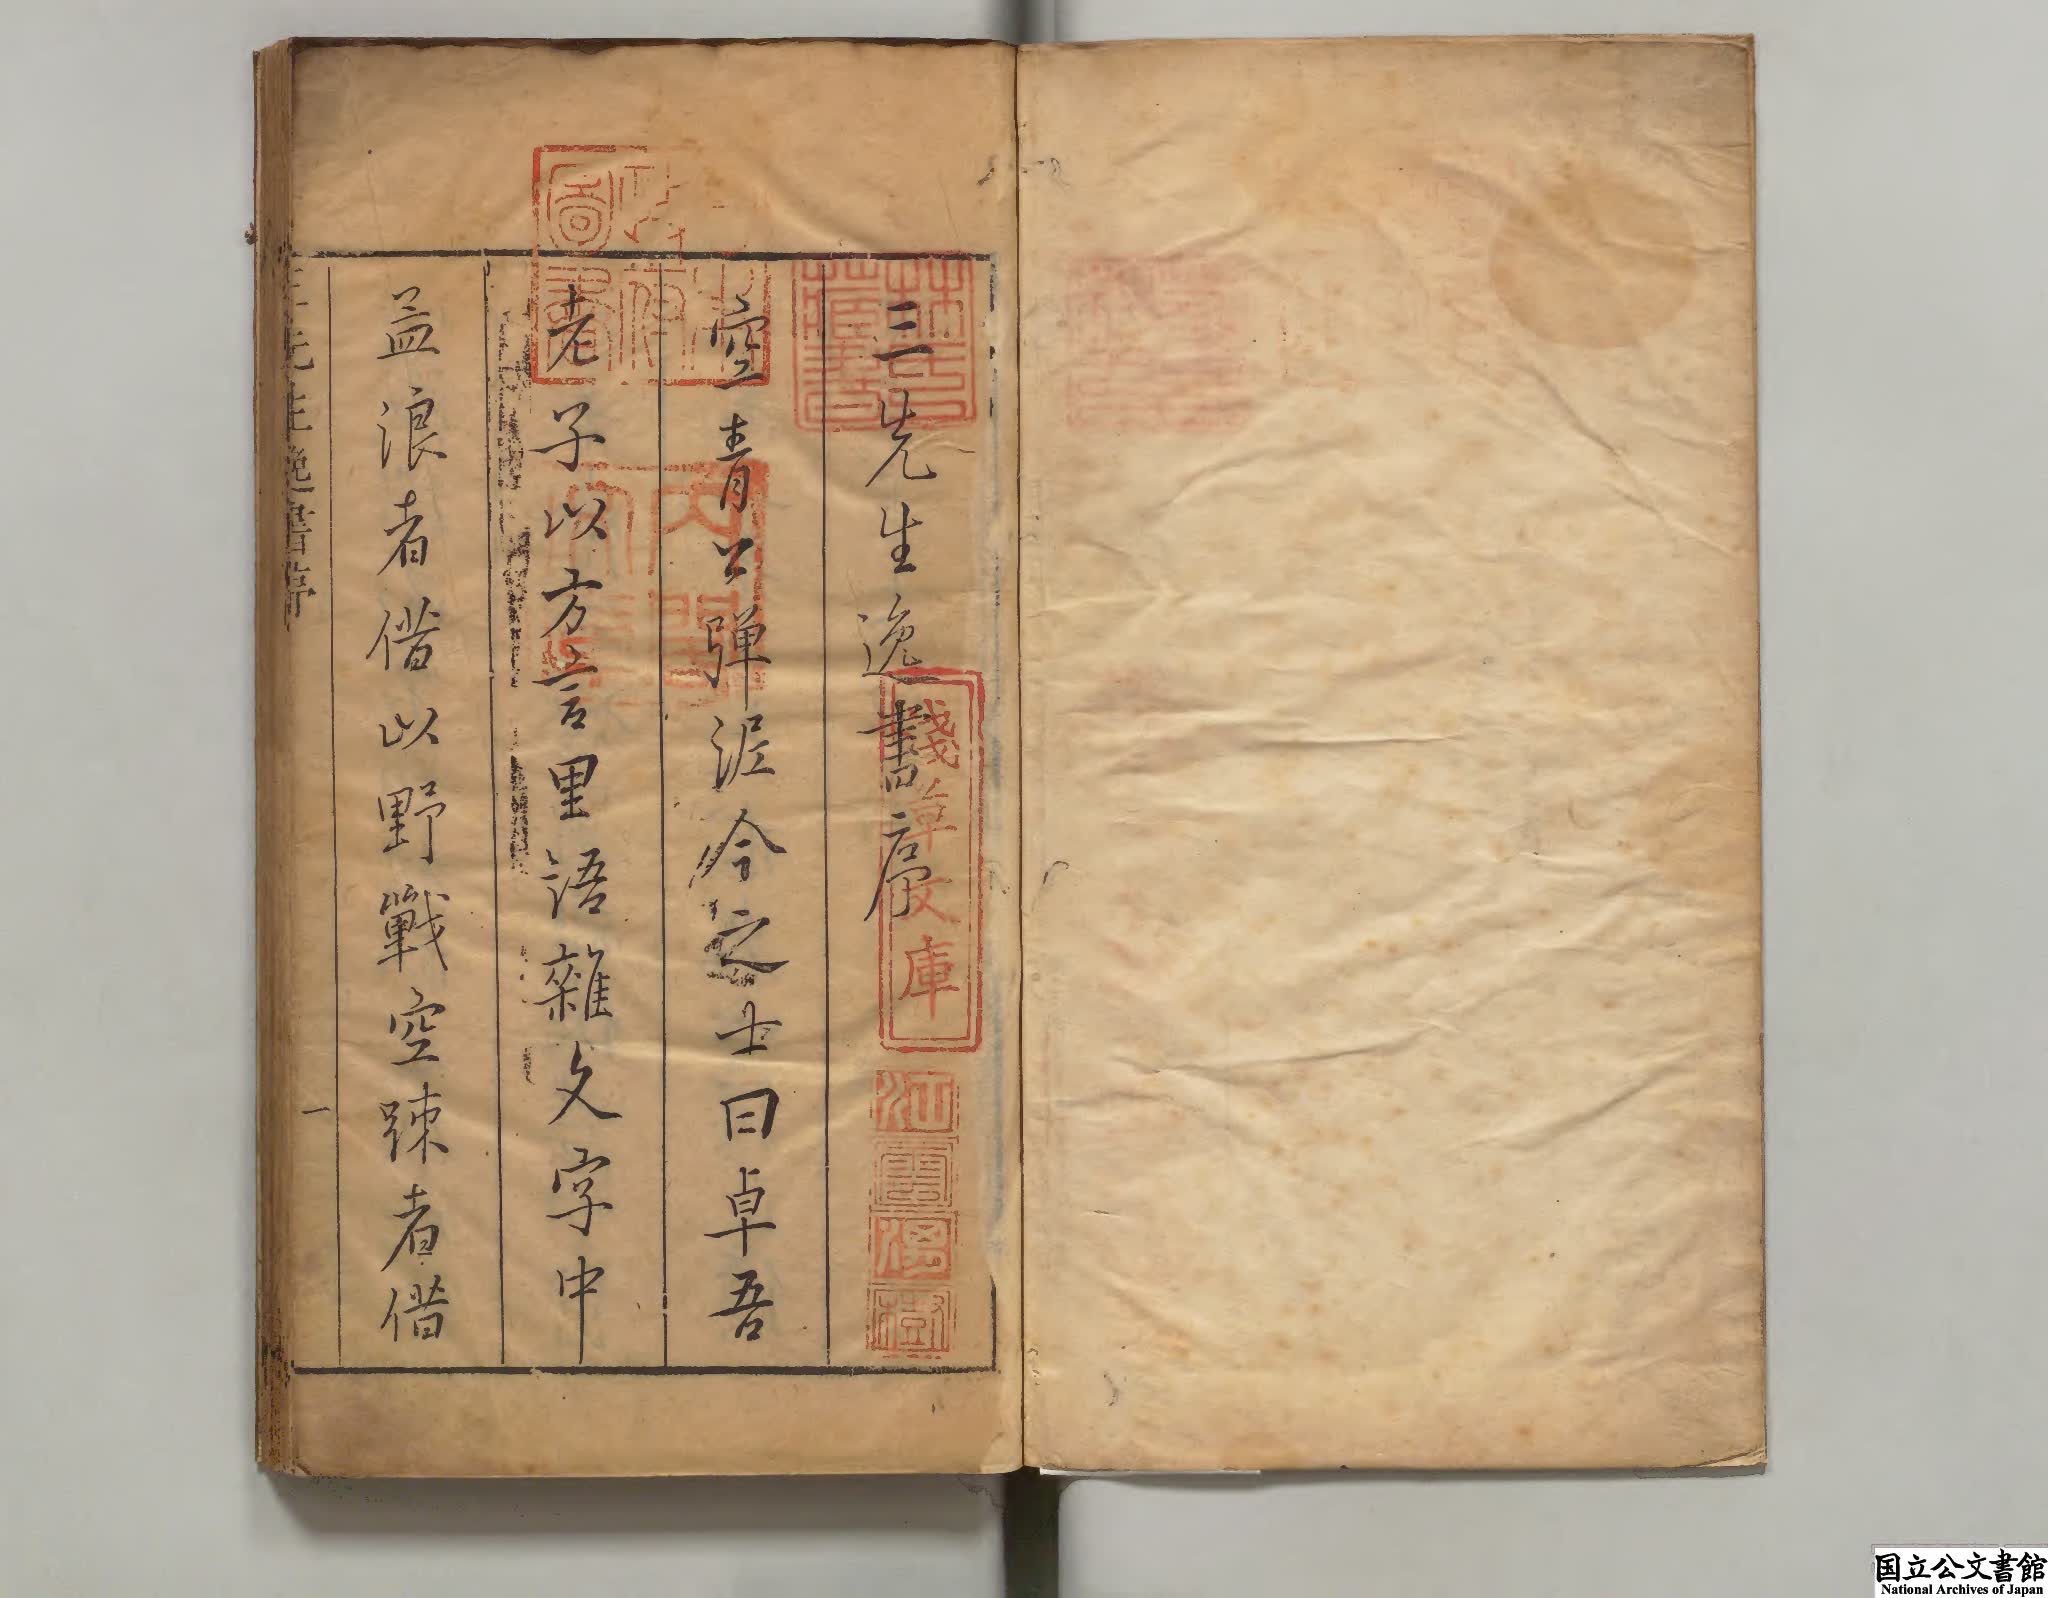 三先生逸書序
空青公彈泥今之士曰卓吾
老子以方言里語雜文字中
益浪者借以野戰空疎者借
三先生逸書序
一
林氏藏書
淺草文庫
江雲渭樹
国立公文書館
National Archives of Japan